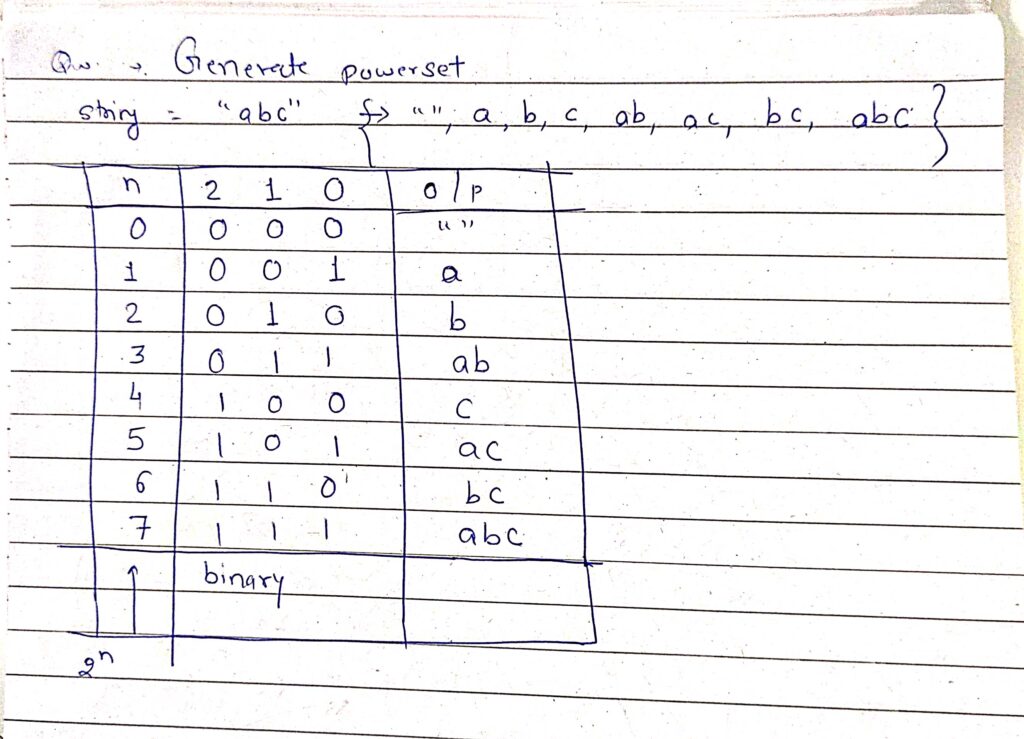 Qu. → Generate powerset
string = "abc" → { "", a, b, c, ab, ac, bc, abc }
n 2 1 0 o/p
0 0 0 0 " "
1 0 0 1 a
2 0 1 0 b
3 0 1 1 ab
4 1 0 0 c
5 1 0 1 ac
6 1 1 0 bc
7 1 1 1 abc
↑ binary
2^n